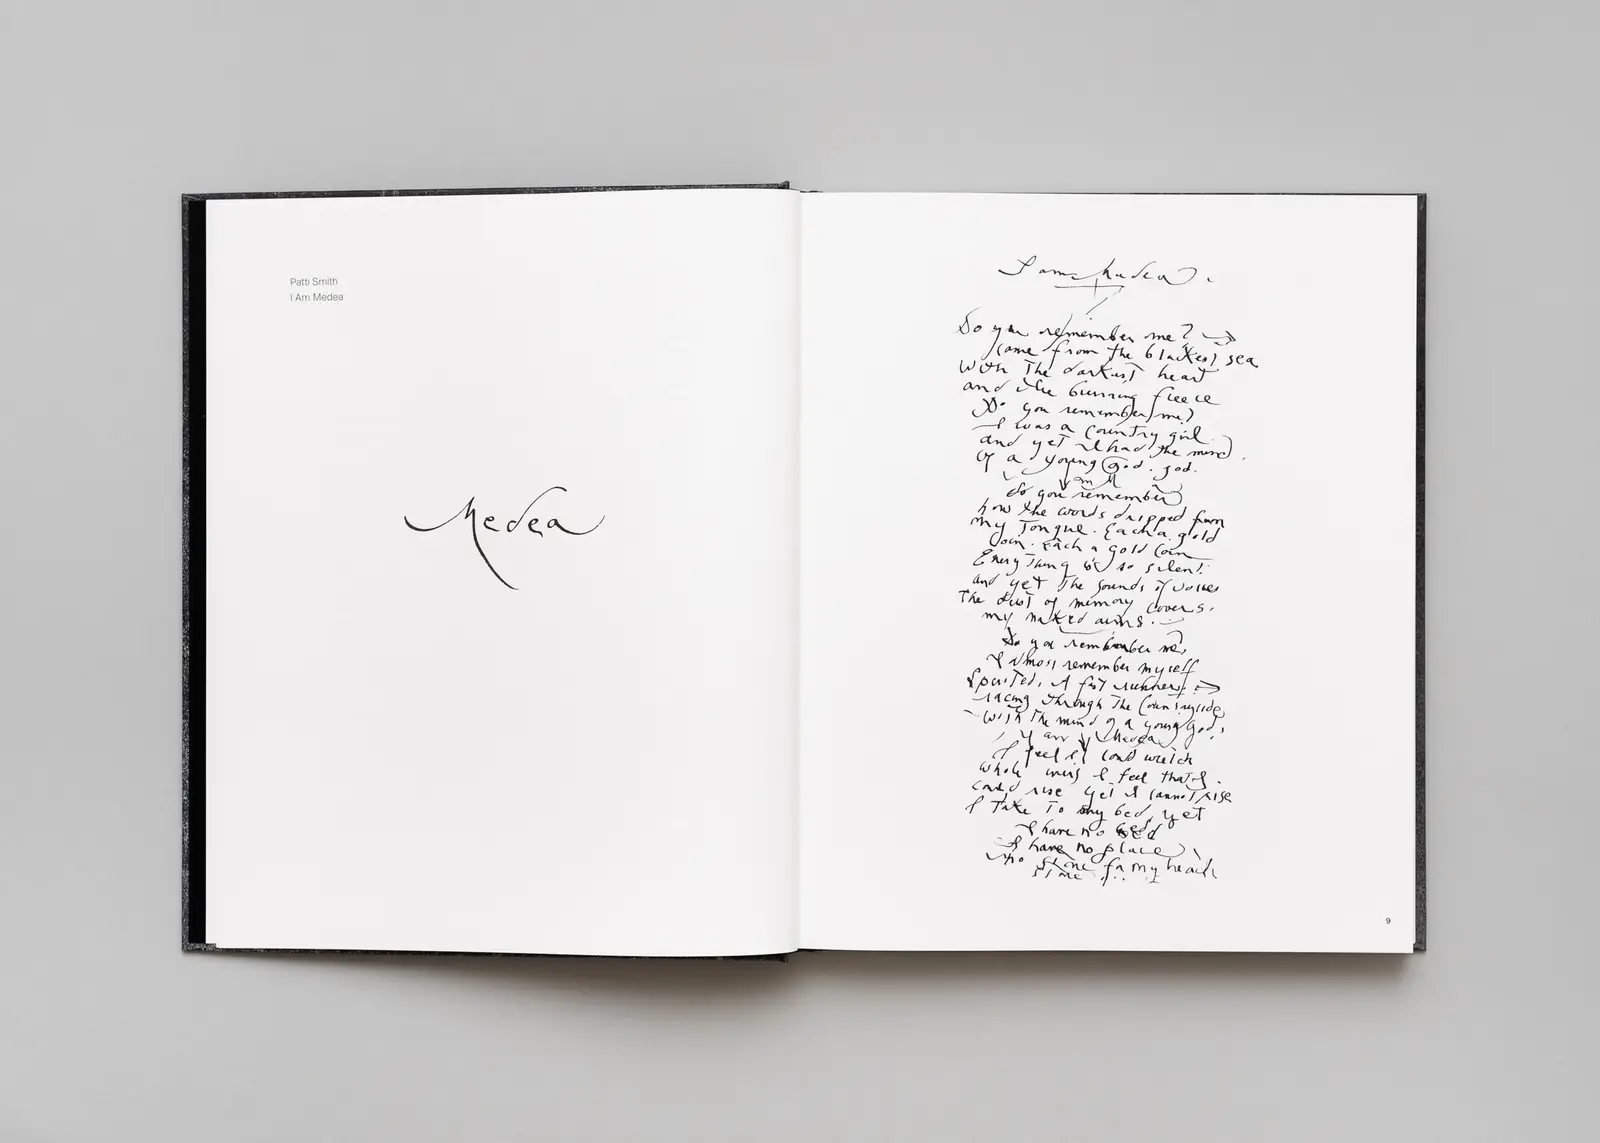 Patti Smith
I Am Medea
Medea
I am Medea.
Do you remember me?
I came from the blackest sea
with the darkest heart
and the burning fleece
Do you remember me?
I was a country girl
and yet I had the mind
of a young god. god.
I am M
do you remember
how the words dripped from
my tongue. Each a gold
coin. Each a gold coin
Everything is so silent.
and yet the sounds of voices
The dust of memory covers
my naked arms.
Do you remember me,
I almost remember myself
Spirited. A fast runner
racing through the countryside
with the mind of a young god,
I am Medea
I feel I could
whole I feel that I
could rise yet I cannot rise
I take to my bed, yet
I have no bed
I have no place
no stone for my head
stone
9